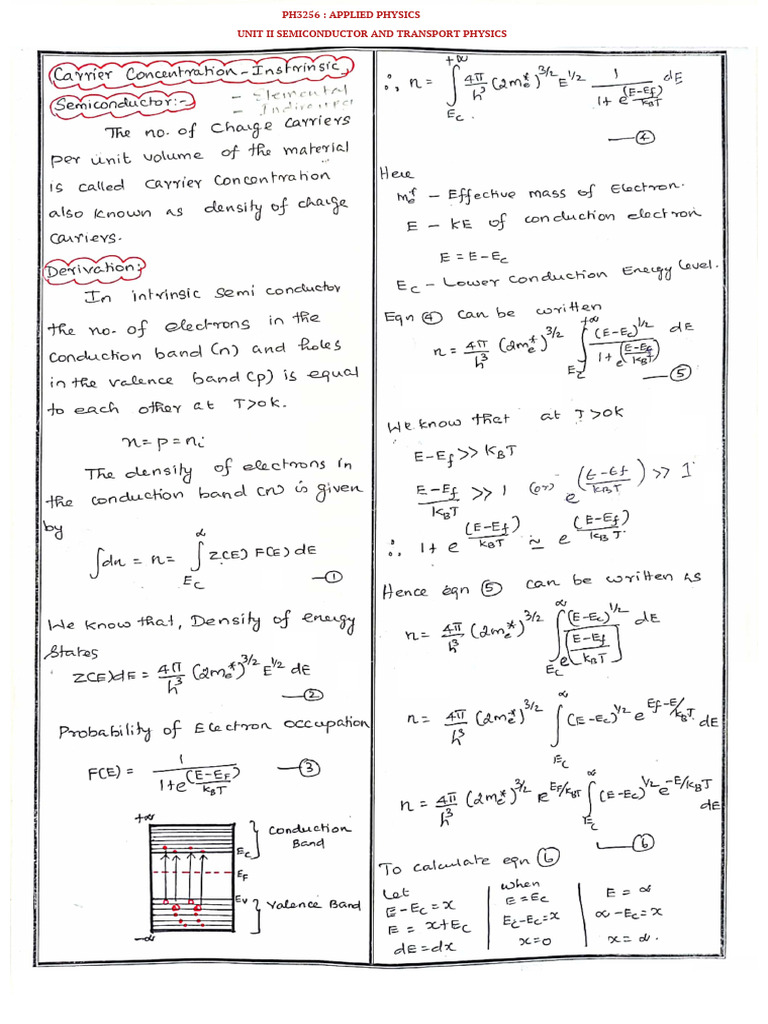 PH3256 : APPLIED PHYSICS
UNIT II SEMICONDUCTOR AND TRANSPORT PHYSICS
Carrier Concentration - Instrinsic
Semiconductor:-
- Elemental
- Indirect
The no. of Charge Carriers
per unit volume of the material
is called Carrier Concentration
also known as density of charge
carriers.
Derivation:
In intrinsic semi conductor
the no. of electrons in the
conduction band (n) and holes
in the valence band (p) is equal
to each other at T>0K.
n = p = nᵢ
The density of electrons in
the conduction band (n) is given
by
∫dn = n = ∫_{E_C}^{∝} Z(E) F(E) dE —①
We know that, Density of energy
States
Z(E)dE = 4π/h³ (2mₑ*)^{3/2} E^{1/2} dE —②
Probability of Electron occupation
F(E) = 1/(1+e^{(E-E_F)/k_BT}) —③
+∝
Conduction
Band
E_C
E_F
E_V
Valence Band
-∝
∴, n = ∫_{E_C}^{+∝} 4π/h³ (2mₑ*)^{3/2} E^{1/2} 1/(1+e^{(E-E_f)/k_BT}) dE —④
Here
mₑ* - Effective mass of Electron.
E - KE of conduction electron
E = E-E_C
E_C - Lower conduction Energy level.
Eqn ④ can be written
n = 4π/h³ (2mₑ*)^{3/2} ∫_{E_C}^{+∝} (E-E_C)^{1/2}/(1+e^{(E-E_f)/k_BT}) dE —⑤
We know that at T>0K
E-E_f >> K_BT
(E-E_f)/K_BT >> 1 (or) e^{(E-E_f)/K_BT} >> 1
∴ 1+e^{(E-E_f)/k_BT} ≃ e^{(E-E_f)/k_BT}
Hence eqn ⑤ can be written as
n = 4π/h³ (2mₑ*)^{3/2} ∫_{E_C}^{∝} (E-E_C)^{1/2}/e^{(E-E_f)/k_BT} dE
n = 4π/h³ (2mₑ*)^{3/2} ∫_{E_C}^{∝} (E-E_C)^{1/2} e^{E_f-E/k_BT} dE
n = 4π/h³ (2mₑ*)^{3/2} e^{E_F/k_BT} ∫_{E_C}^{∝} (E-E_C)^{1/2} e^{-E/k_BT} dE —⑥
To calculate eqn ⑥
Let
E-E_C = x
E = x+E_C
dE = dx
when
E = E_C
E_C-E_C = x
x = 0
E = ∝
∝-E_C = x
x = ∝.